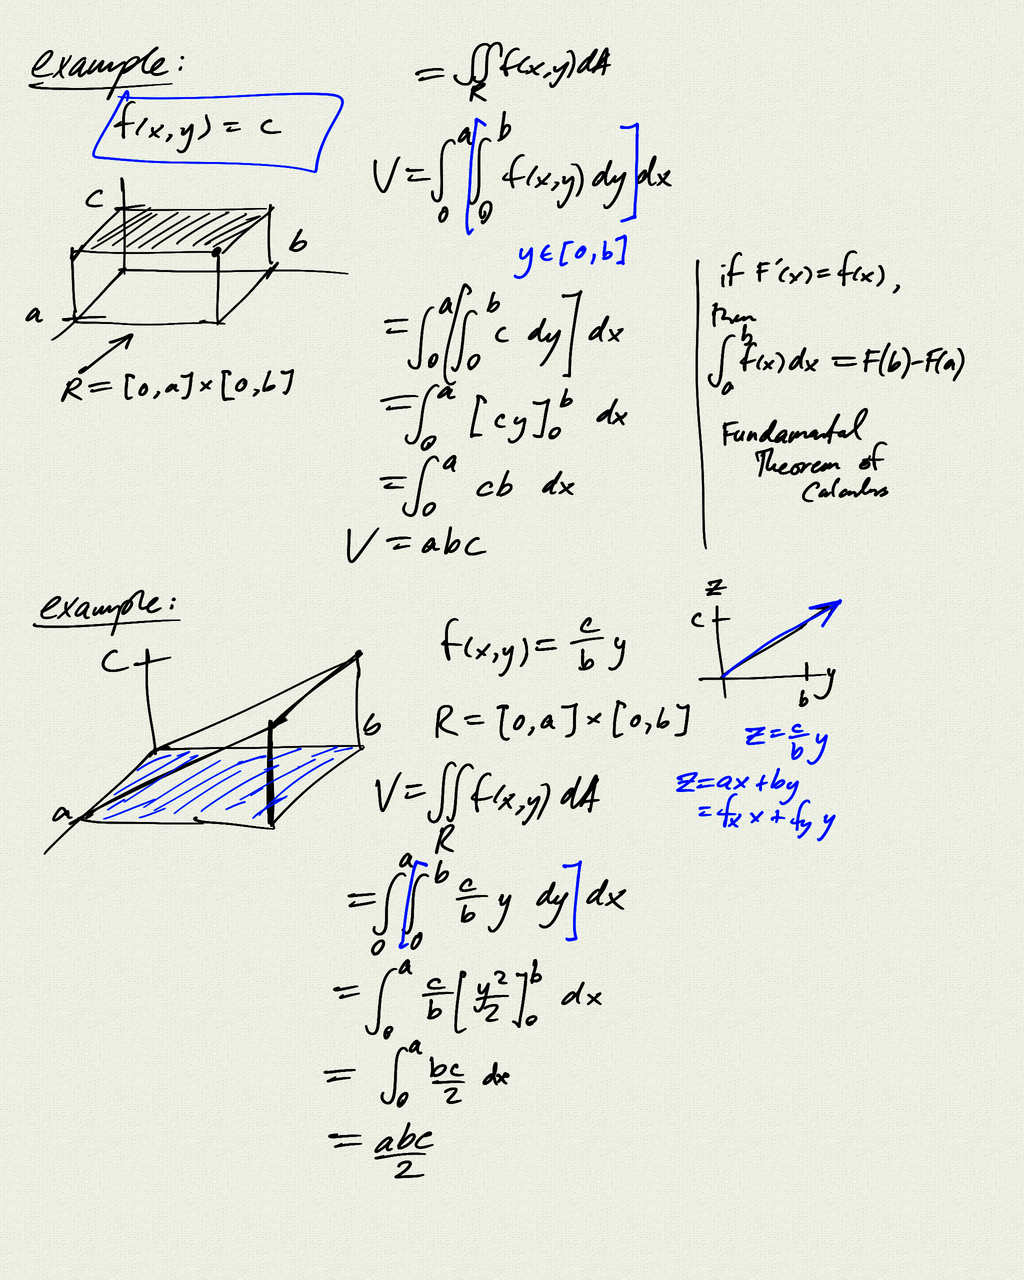 example:
f(x,y) = c
c
b
a
R = [0,a] × [0,b]
= ∬_R f(x,y) dA
V = ∫_0^a [ ∫_0^b f(x,y) dy ] dx
y ∈ [0,b]
= ∫_0^a [ ∫_0^b c dy ] dx
= ∫_0^a [cy]_0^b dx
= ∫_0^a cb dx
V = abc
if F'(x) = f(x),
then
∫_a^b f(x) dx = F(b) - F(a)
Fundamental
Theorem of
Calculus
example:
C
b
a
f(x,y) = c/b y
R = [0,a] × [0,b]
V = ∬_R f(x,y) dA
= ∫_0^a [ ∫_0^b c/b y dy ] dx
= ∫_0^a c/b [ y²/2 ]_0^b dx
= ∫_0^a bc/2 dx
= abc/2
z
c
y
b
z = c/b y
z = ax + by
= f_x x + f_y y